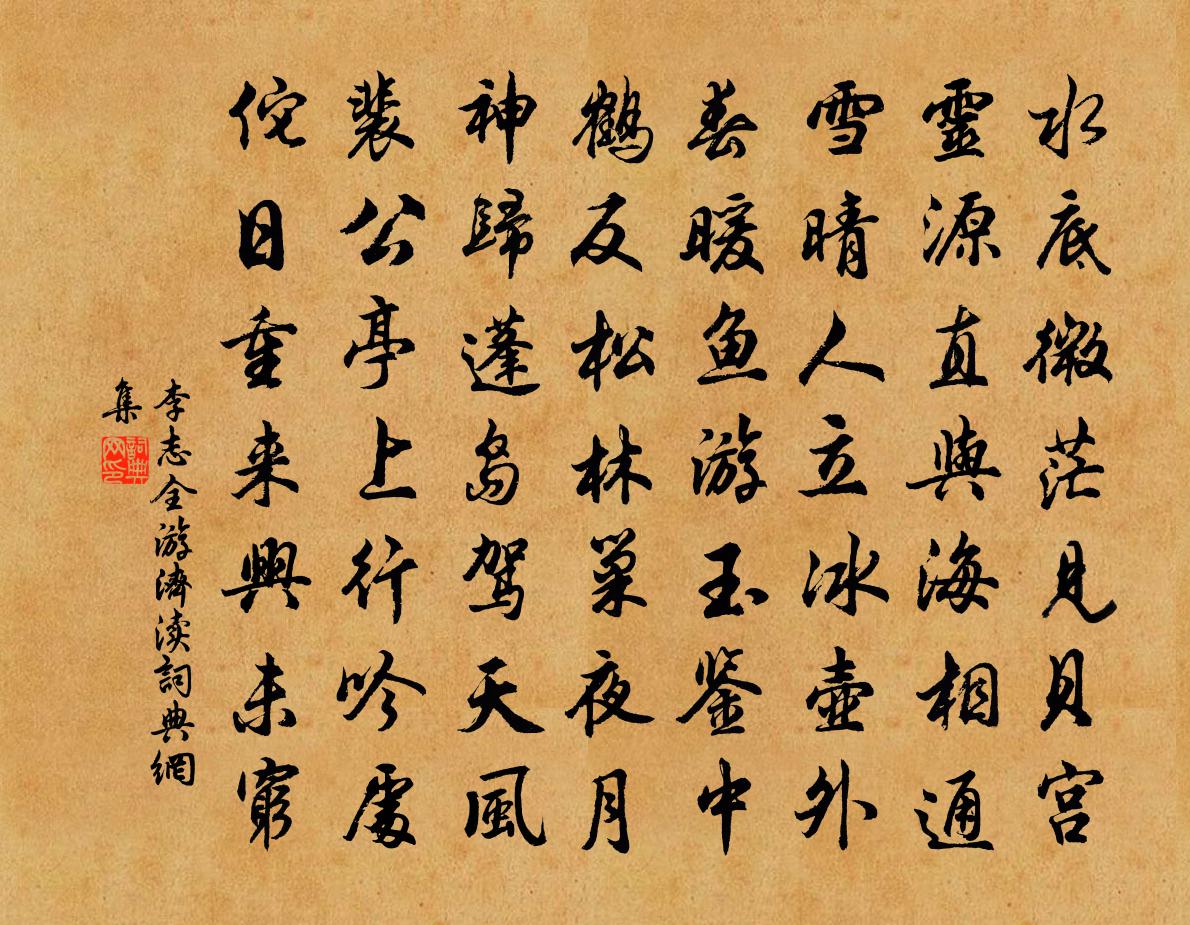 水底微茫見貝宮
靈源直與海相通
雪晴人立冰壺外
春暖魚游玉鉴中
鶴反松林巢夜月
神歸蓬島駕天風
裴公亭上行吟處
侘日重来興未窮
李志全游濟渎詞典網
集
詞典網印